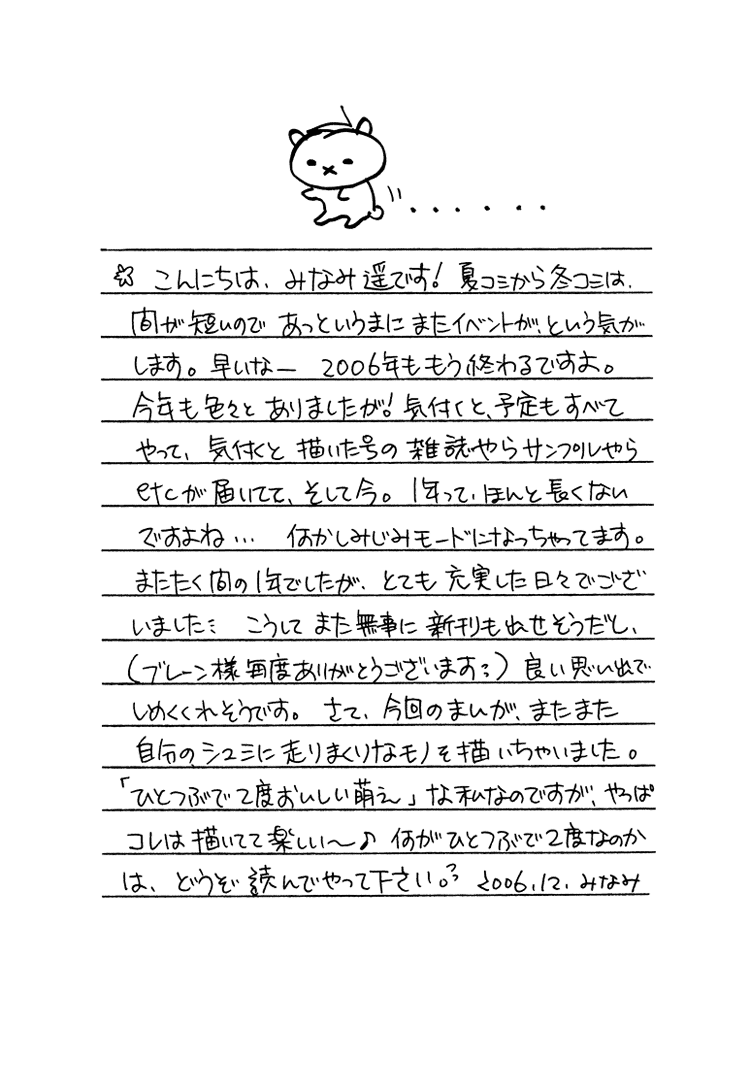 ☆ こんにちは、みなみ遥です! 夏コミから冬コミは、
間が短いので あっというまに またイベントが、という気が
します。早いなー 2006年ももう終わるですよ。
今年も色々と ありましたが! 気付くと、予定もすべて
やって、気付くと 描いた号の 雑誌やら サンプルやら
etcが届いてて、そして今。1年って、ほんと長くない
ですよね… 何かしみじみモードになっちゃってます。
またたく間の1年でしたが、とても 充実した日々でござ
いました: こうして また無事に 新刊も出せそうだし、
(ブレーン様毎度ありがとうございます) 良い思い出で
しめくくれそうです。さて、今回のまんが、またまた
自分の、シュミに走りまくりなモノを描いちゃいました。
「ひとつぶで2度おいしい萌え」な私なのですが、やっぱ
コレは描いてて楽しい〜♪ 何がひとつぶで2度なのか
は、どうぞ読んでやって下さい。 2006.12. みなみ